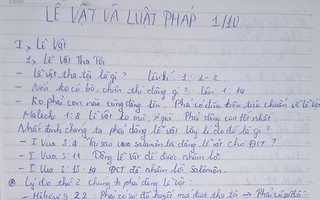 LỄ VẬT VÀ LUẬT PHÁP 1/10
I> Lễ Vật
1> Lễ Vật Tha Tội
- Lễ vật tha tội là gì? Lêvi kí 1: 1-2
- Nếu ko có bò, chiên thì dâng gì? Lêvi 1: 14
- Ko phải con nào cũng dâng lên. Phải có điều tiêu chuẩn về lễ vật
Malachi 1:8 Lễ vật ko mù, què. Phải dâng con tốt nhất.
Nhất định chúng ta phải dâng lễ vật. Vậy lí do đó là gì?
- I Vua 3:4 Tại sao vua salômôn lại dâng lễ vật cho ĐCT?
- I Vua 3:11 Dâng lễ vật để được nhậm lời
- I Vua 3:13-14 ĐCT đã nhậm lời salômôn.
Lý do thứ 2 chúng ta phải dâng lễ vật:
- Hêbơrơ 9:22 Phải có sự đổ huyết mới được tha tội → Phải có